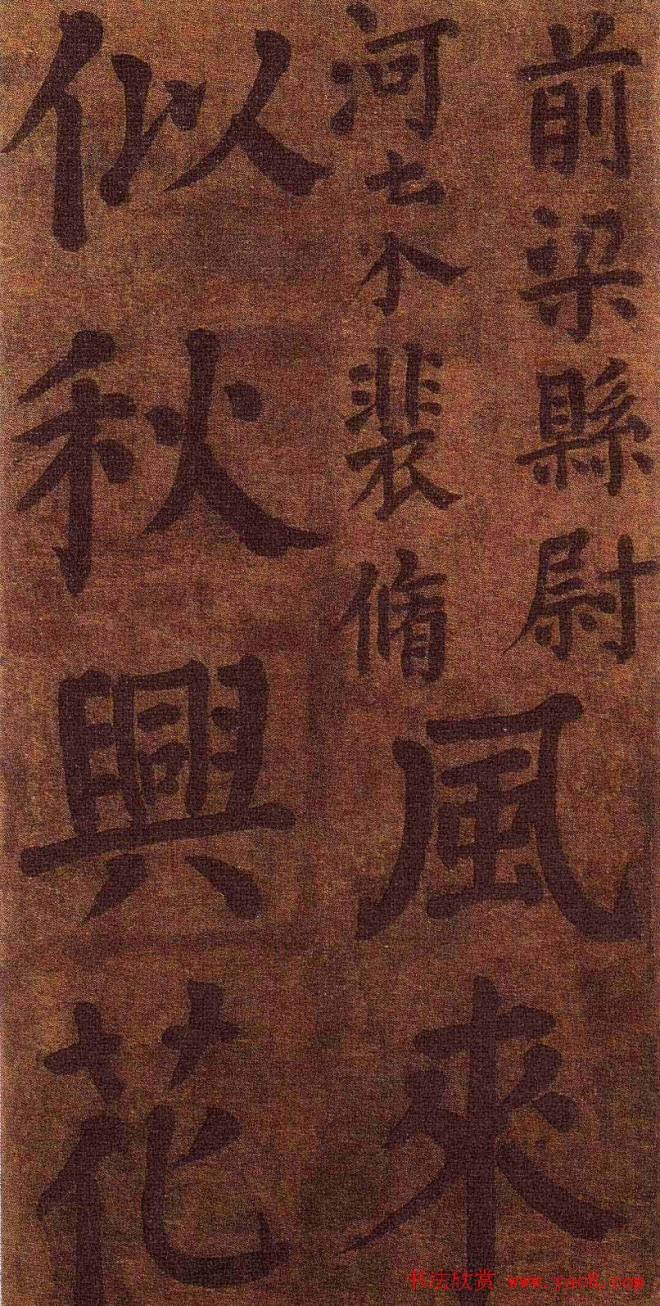 前梁縣尉
河東裴脩
風來
似秋興花
书法欣赏 www.yac8.com